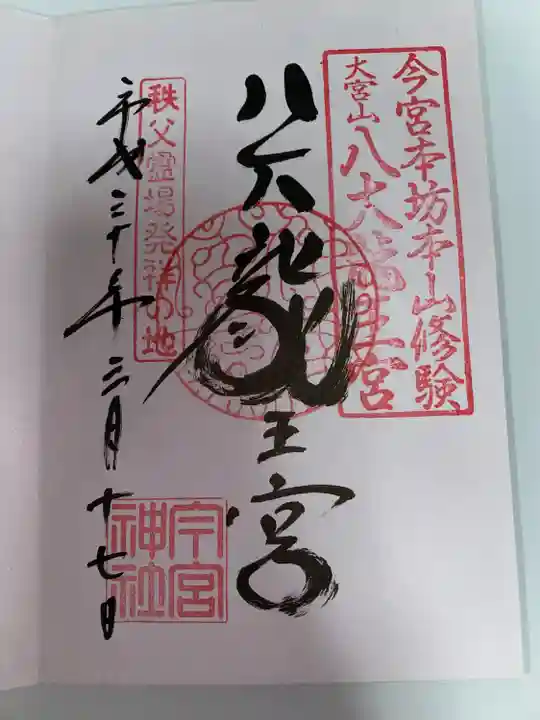 今宮本坊本山修験
大宮山八大龍王宮
八大龍王宮
秩父霊場発祥の地
平成三十年三月十七日
今宮神社